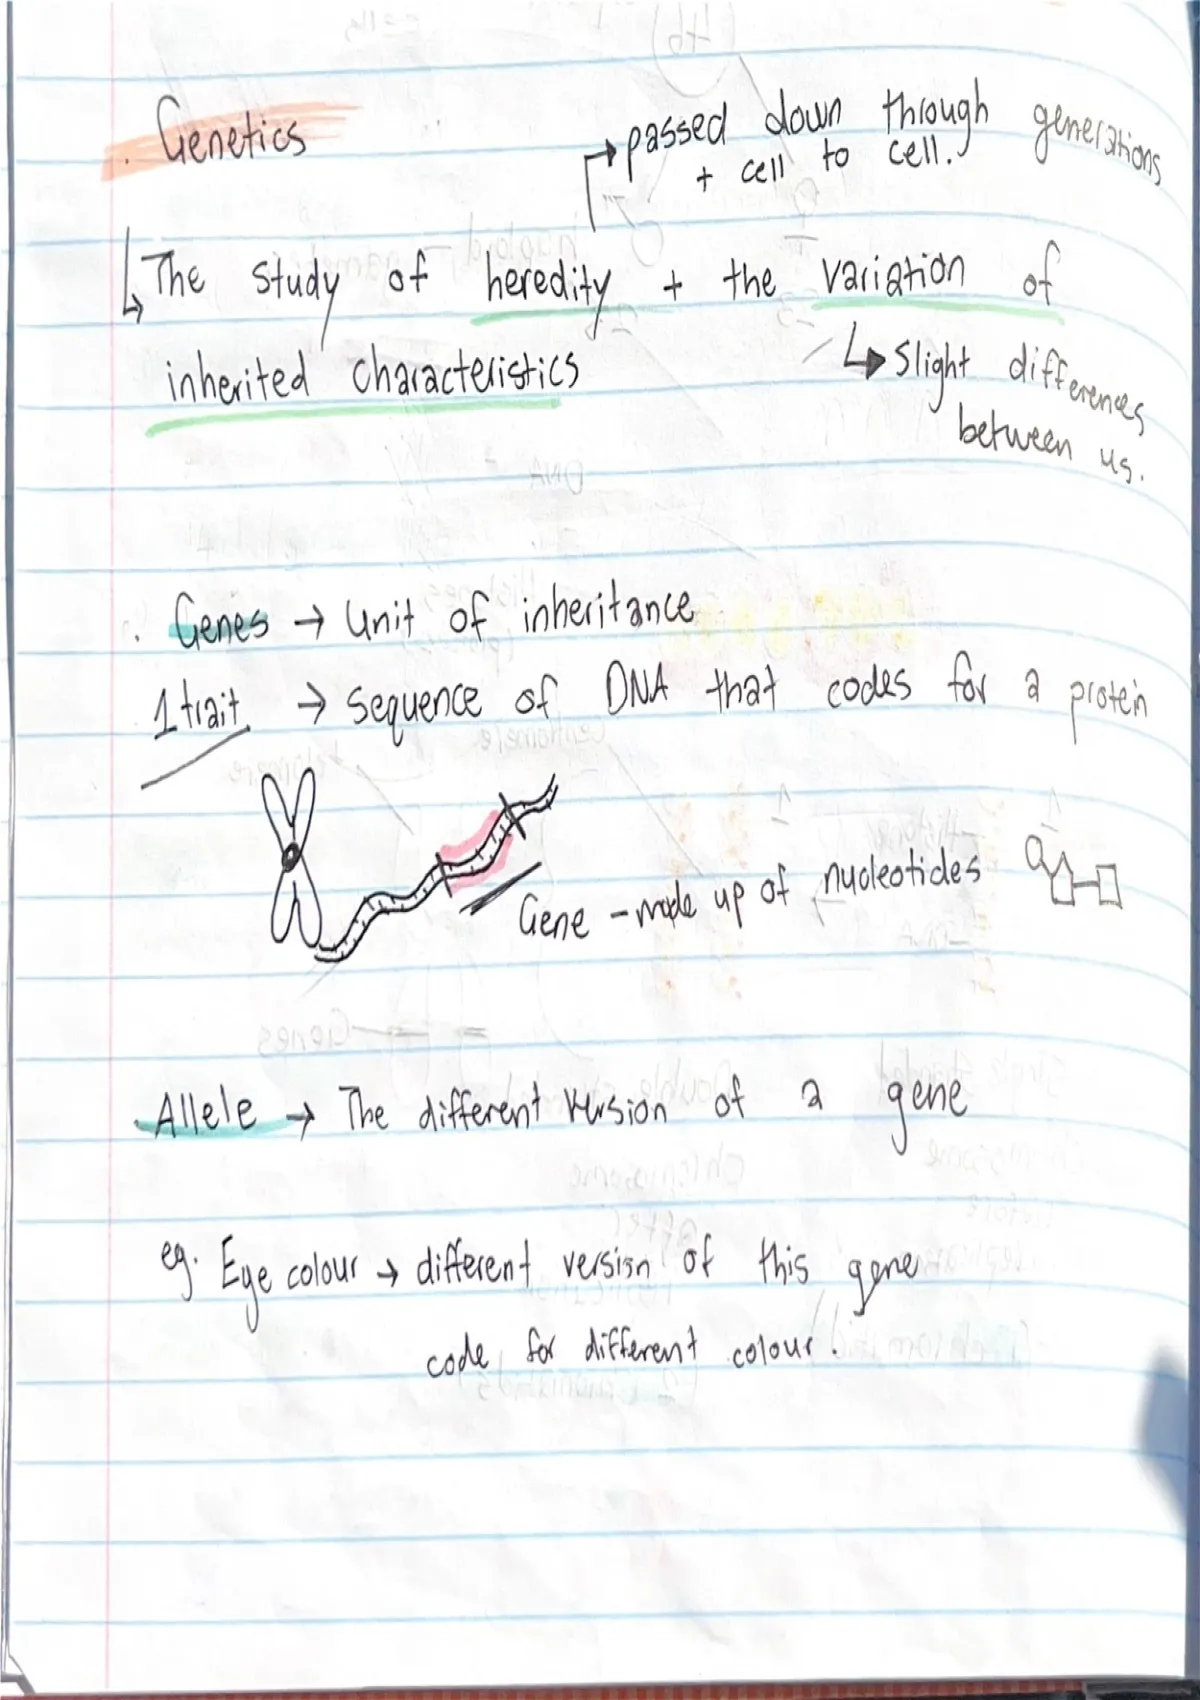 Genetics
→ passed down through generations
+ cell to cell.
↳ The study of heredity + the variation of
inherited characteristics
↳ Slight differences
between us.
. Genes → Unit of inheritance
1 trait → sequence of DNA that codes for a protein
Gene - made up of nucleotides
. Allele → The different version of a gene
eg. Eye colour → different version of this gene
code for different colour.